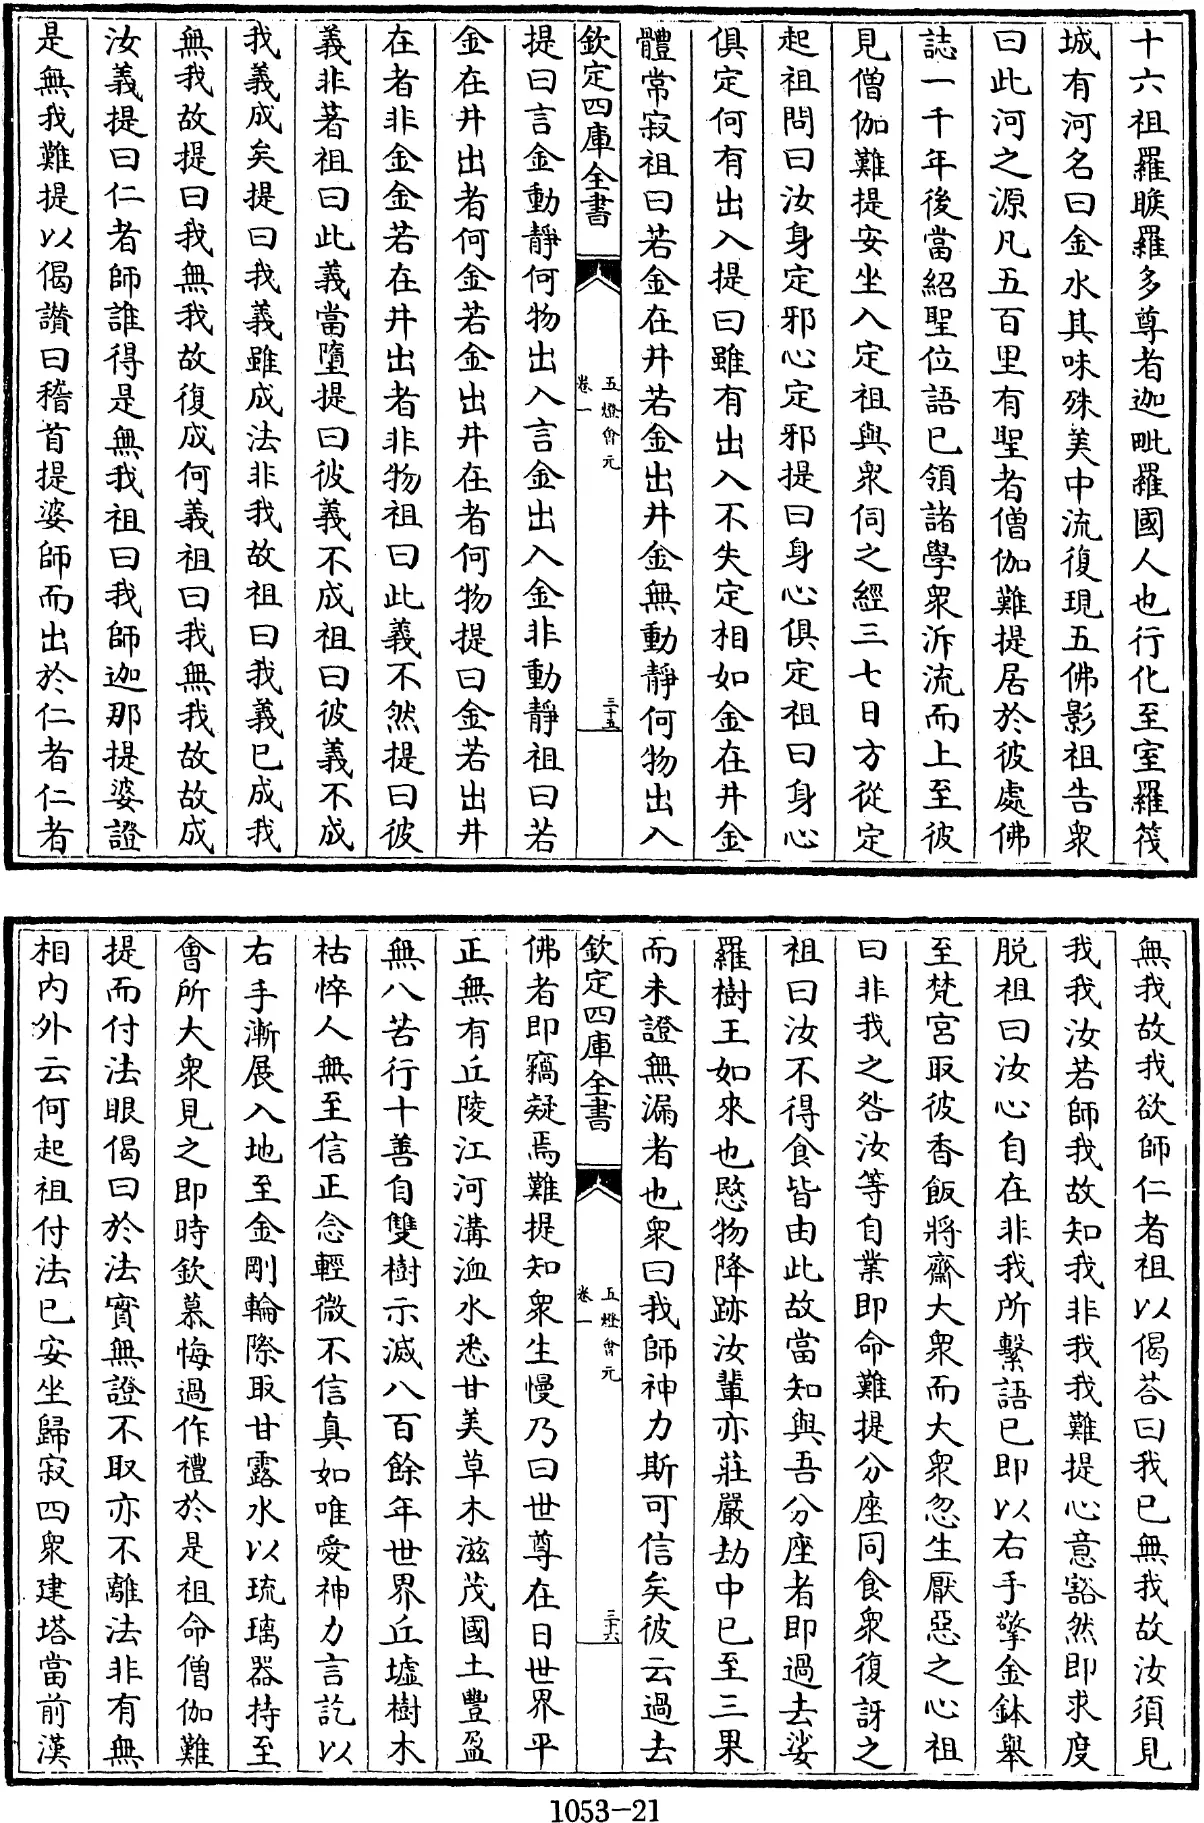 十六祖羅睺羅多尊者迦毗羅國人也行化至室羅筏
城有河名曰金水其味殊美中流復現五佛影祖告衆
曰此河之源凡五百里有聖者僧伽難提居於彼處佛
誌一千年後當紹聖位語已領諸學衆泝流而上至彼
見僧伽難提安坐入定祖與衆伺之經三七日方從定
起祖問曰汝身定邪心定邪提曰身心俱定祖曰身心
俱定何有出入提曰雖有出入不失定相如金在井金
體常寂祖曰若金在井若金出井金無動靜何物出入
欽定四庫全書
五燈會元
卷一
三十五
提曰言金動靜何物出入言金出入金非動靜祖曰若
金在井出者何金若金出井在者何物提曰金若出井
在者非金金若在井出者非物祖曰此義不然提曰彼
義非著祖曰此義當墮提曰彼義不成祖曰彼義不成
我義成矣提曰我義雖成法非我故祖曰我義已成我
無我故提曰我無我故復成何義祖曰我無我故故成
汝義提曰仁者師誰得是無我祖曰我師迦那提婆證
是無我難提以偈讚曰稽首提婆師而出於仁者仁者
無我故我欲師仁者祖以偈荅曰我已無我故汝須見
我我汝若師我故知我非我我難提心意豁然即求度
脱祖曰汝心自在非我所繫語已即以右手擎金鉢舉
至梵宮取彼香飯將齋大衆而大衆忽生厭惡之心祖
曰非我之咎汝等自業即命難提分座同食衆復訝之
祖曰汝不得食皆由此故當知與吾分座者即過去娑
羅樹王如來也愍物降跡汝輩亦莊嚴劫中已至三果
而未證無漏者也衆曰我師神力斯可信矣彼云過去
欽定四庫全書
五燈會元
卷一
三十六
佛者即竊疑焉難提知衆生慢乃曰世尊在日世界平
正無有丘陵江河溝洫水悉甘美草木滋茂國土豐盈
無八苦行十善自雙樹示滅八百餘年世界丘墟樹木
枯悴人無至信正念輕微不信真如唯愛神力言訖以
右手漸展入地至金剛輪際取甘露水以琉璃器持至
會所大衆見之即時欽慕悔過作禮於是祖命僧伽難
提而付法眼偈曰於法實無證不取亦不離法非有無
相内外云何起祖付法已安坐歸寂四衆建塔當前漢
1053-21